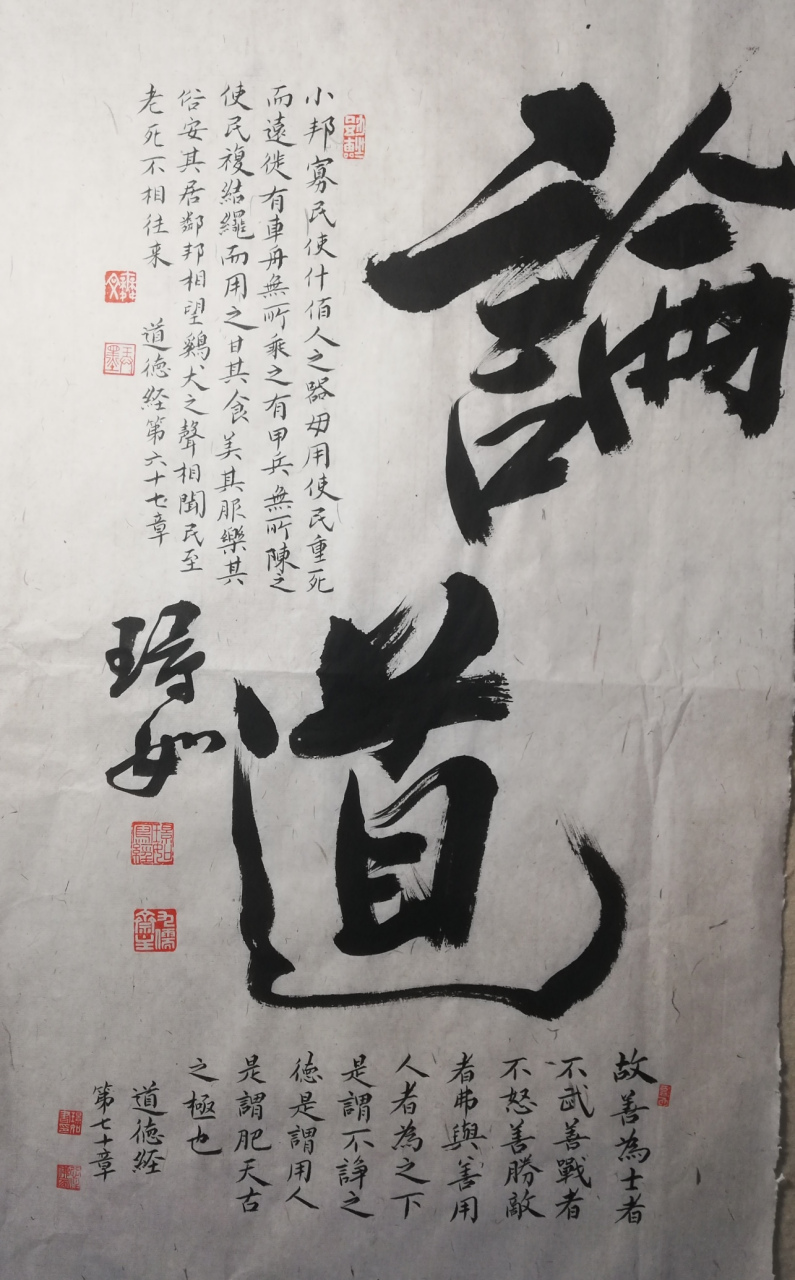 論道
小邦寡民使什佰人之器毋用使民重死
而遠徙有車舟無所乘之有甲兵無所陳之
使民複結繩而用之甘其食美其服樂其
俗安其居鄰邦相望鷄犬之聲相聞民至
老死不相往来 道德経第六十七章
故善為士者
不武善戰者
不怒善勝敵
者弗與善用
人者為之下
是謂不諍之
德是謂用人
是謂肥天古
之極也
道德経
第七十章